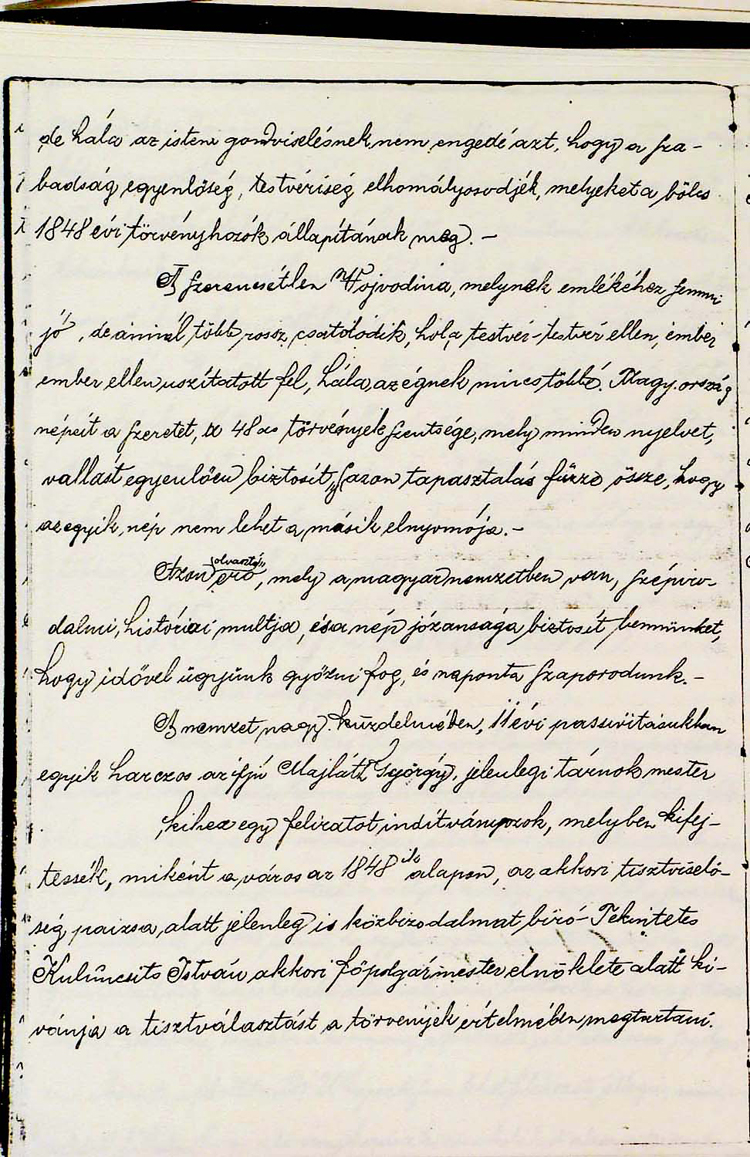 de hála az isteni gondviselésnek nem engedé azt, hogy a sza-
badság egyenlőség, testvériség elhomályosodjék, melyeket a bölcs
1848 évi törvényhozók állapítának meg. -
A szerencsétlen Wojvodina, melynek emlékéhez semmi
jó, de annál több rossz csatolódik, hola testvér-testvér ellen, ember
ember ellen uszítatott fel, hála az égnek nincs többé. Magy. ország
népeit a szeretet, a 48as törvények szentsége, mely minden nyelvet,
vallást egyenlően biztosít, s azon tapasztalás fűzze össze, hogy
az egyik nép nem lehet a másik elnyomója. -
Azon olvasztó erő, mely a magyar nemzetben van, szépiro-
dalmi, históriai multja, és a nép józansága biztosít bennünket,
hogy idővel ügyünk győzni fog, és naponta szaporodunk. -
A nemzet nagy küzdelmében, 11 évi passivitásukban
egyik harczos az ifjú Majláth György, jelenlegi tárnokmester
kihez egy feliratot indítványozok, melyben kifej-
tessék, miként a város az 1848ik alapon, az akkori tisztviselő-
ség paizsa alatt jelenleg is közbizodalmat biró Tekintetes
Kulüncsits István akkori főpolgármester elnöklete alatt ki-
vánja a tisztválasztást a törvények értelmében megtartani.